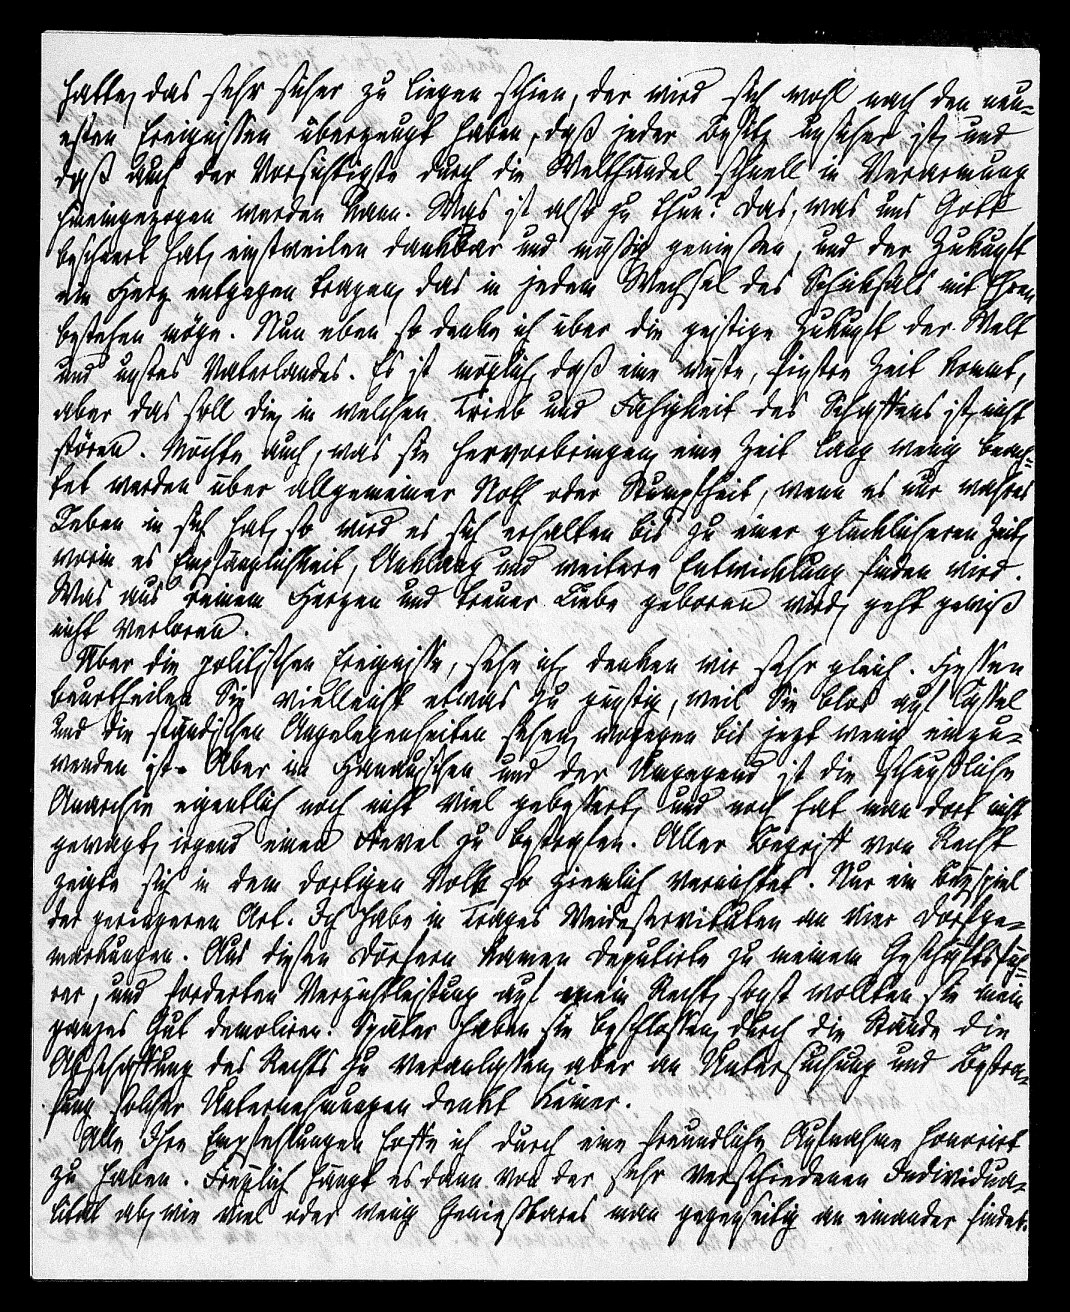 hatte, das sehr sicher zu liegen schien, der wird sich wohl nach den neu-
esten Ereignissen überzeugt haben, daß jeder Besitz unsicher ist, und
daß auch der Vorsichtigste durch die Welthändel schnell in Verarmung
hineingezogen werden kann. Was ist also zu thun? Das, was uns Gott
bescheert hat, einstweilen dankbar und mäßig genießen, und der Zukunft
ein Herz entgegen tragen, das in jedem Wechsel des Schicksals mit Ehren
bestehen möge. Nun eben so denke ich über die geistige Zukunft der Welt
und unsres Vaterlandes. Es ist möglich, daß eine wüste, finstre Zeit kommt,
aber das soll die, in welchen Trieb und Fähigkeit des Schaffens ist, nicht
stören. Möchte auch, was sie hervorbringen, eine Zeit lang wenig beach-
tet werden über allgemeiner Noth oder Stumpfheit, wenn es nur wahres
Leben in sich hat, so wird es sich erhalten bis zu einer glücklicheren Zeit,
worin es Empfänglichkeit, Anklang und weitere Entwicklung finden wird.
Was aus reinem Herzen und treuer Liebe geboren wird, geht gewiß
nicht verloren.
Über die politischen Ereignisse, sehe ich, denken wir sehr gleich. Hessen
beurtheilen Sie vielleicht etwas zu günstig, weil Sie blos auf Cassel
und die ständischen Angelegenheiten sehen, wogegen bis jezt wenig einzu-
wenden ist. Aber im Hanauischen und der Umgegend ist die scheußliche
Anarchie eigentlich noch nicht viel gebessert, und noch hat man dort nicht
gewagt, irgend einen Frevel zu bestrafen. Aller Begriff von Recht
zeigte sich in dem dortigen Volk so ziemlich vernichtet. Nur ein Beyspiel
der geringeren Art. Ich habe in Trages Weideservituten an vier Dorfge-
markungen. Aus diesen Dörfern kamen Deputirte zu meinem Geschäftsfüh-
rer, und forderten Verzichtleistung auf mein Recht, sonst wollten sie mein
ganzes Gut demoliren. Später haben sie beschlossen, durch die Stände die
Abschaffung des Rechts zu veranlassen, aber an Untersuchung und Bestra-
fung solcher Unternehmungen denkt Keiner.
Alle Ihre Empfehlungen hoffe ich durch eine freundliche Aufnahme honorirt
zu haben. Freylich hängt es dann von der sehr verschiedenen Individua-
lität ab, wie viel oder wenig Genießbares man gegenseitig an einander findet.